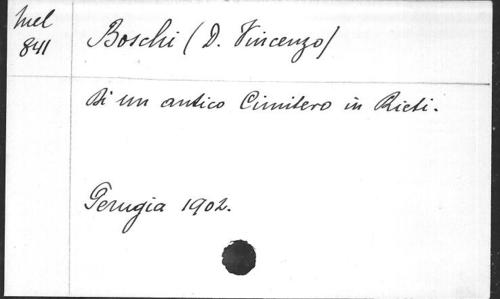 Mel
841
Boschi (D. Vincenzo)
Di un antico Cimitero in Rieti.
Perugia 1902.